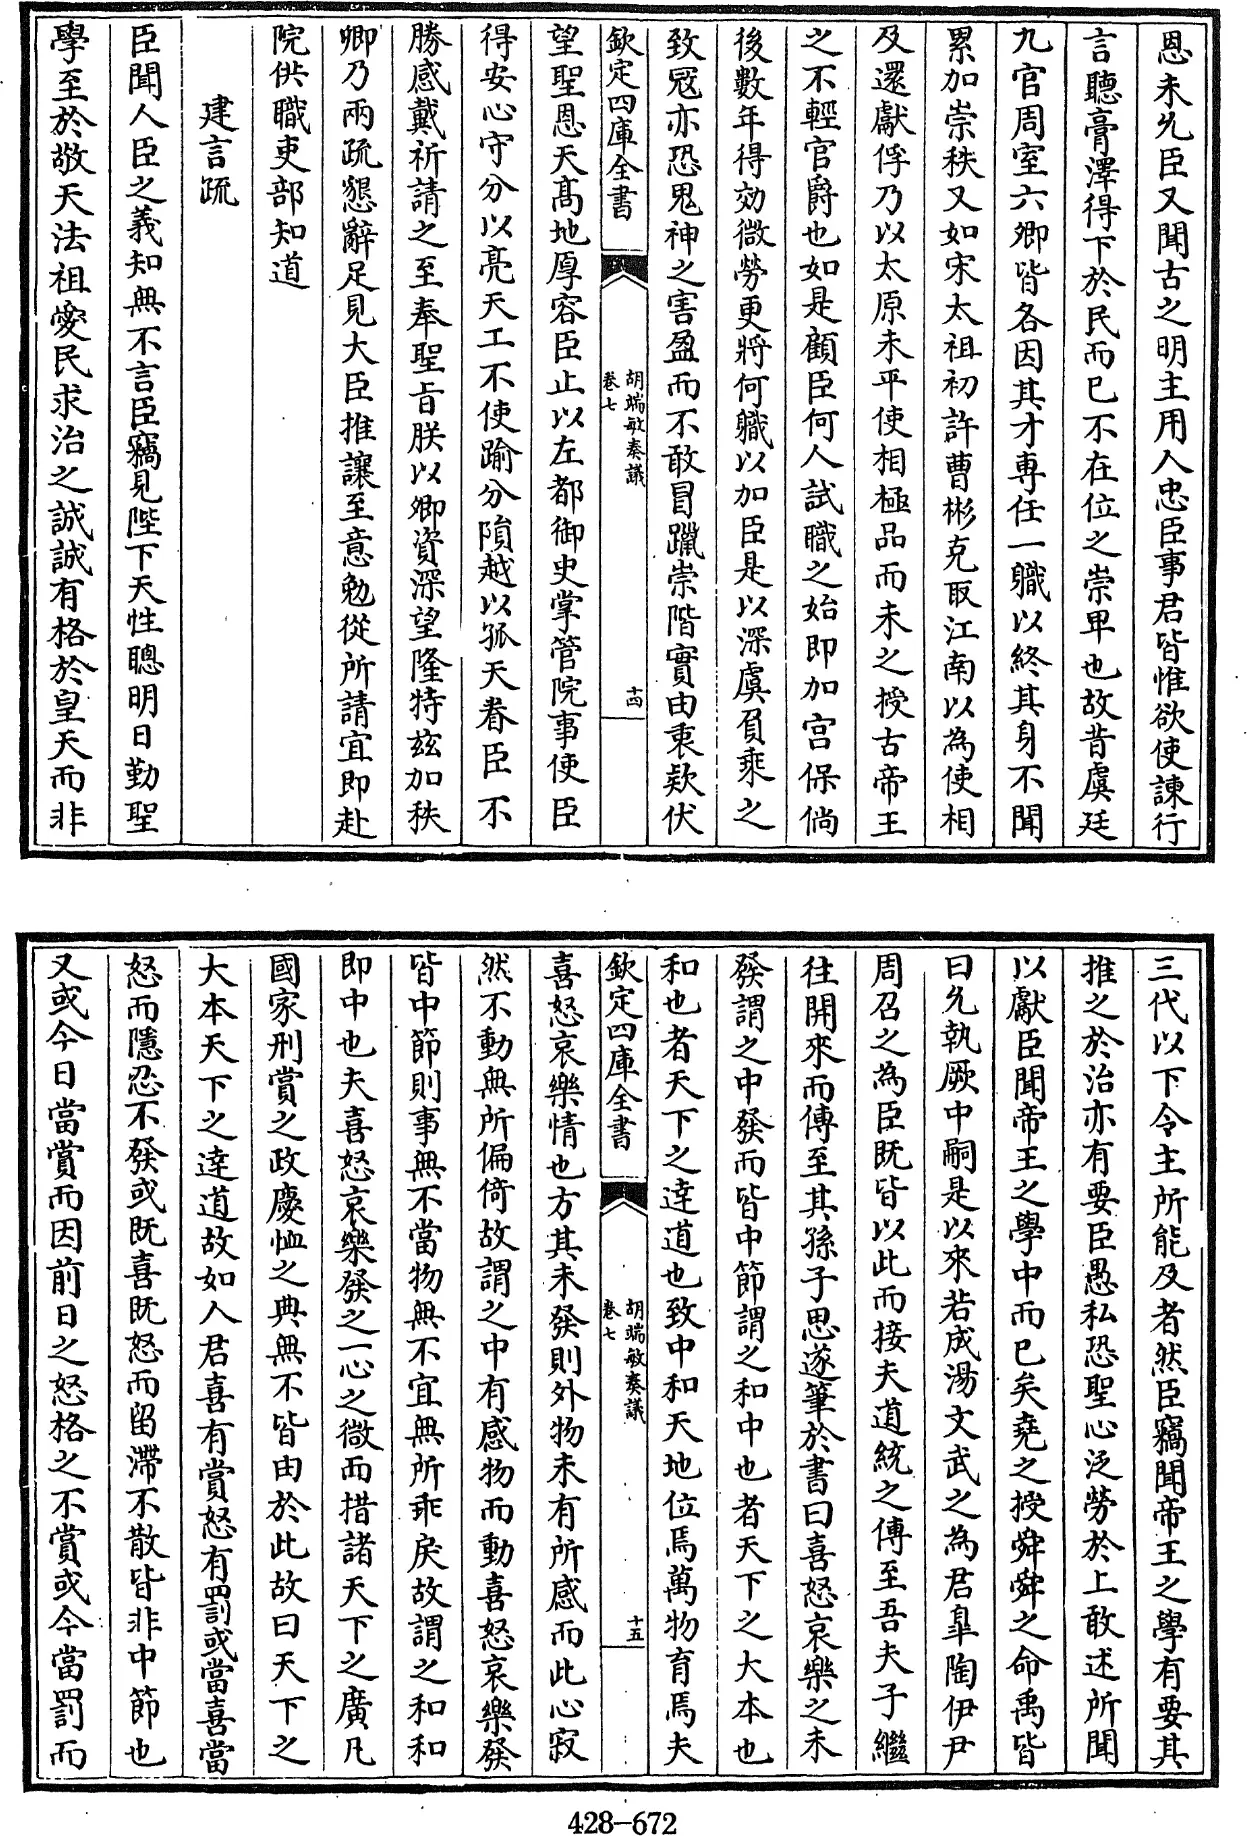 恩未允臣又聞古之明主用人忠臣事君皆惟欲使諫行
言聽膏澤得下於民而已不在位之崇卑也故昔虞廷
九官周室六卿皆各因其才専任一職以終其身不聞
累加崇秩又如宋太祖初許曹彬克取江南以為使相
及還獻俘乃以太原未平使相極品而未之授古帝王
之不輕官爵也如是顧臣何人試職之始即加宫保倘
後數年得効微勞更將何職以加臣是以深虞負乘之
致冦亦恐鬼神之害盈而不敢冒躐崇階實由衷欵伏
欽定四庫全書
胡端敏奏議
卷七
十四
望聖恩天髙地厚容臣止以左都御史掌管院事使臣
得安心守分以亮天工不使踰分隕越以孤天眷臣不
勝感戴祈請之至奉聖旨朕以卿資深望隆特兹加秩
卿乃兩疏懇辭足見大臣推讓至意勉從所請宜即赴
院供職吏部知道
建言疏
臣聞人臣之義知無不言臣竊見陛下天性聰明日勤聖
學至於敬天法祖愛民求治之誠誠有格於皇天而非
三代以下令主所能及者然臣竊聞帝王之學有要其
推之於治亦有要臣愚私恐聖心泛勞於上敢述所聞
以獻臣聞帝王之學中而已矣堯之授舜舜之命禹皆
曰允執厥中嗣是以來若成湯文武之為君臯陶伊尹
周召之為臣既皆以此而接夫道統之傳至吾夫子繼
往開來而傳至其孫子思遂筆於書曰喜怒哀樂之未
發謂之中發而皆中節謂之和中也者天下之大本也
和也者天下之逹道也致中和天地位焉萬物育焉夫
欽定四庫全書
胡端敏奏議
卷七
十五
喜怒哀樂情也方其未發則外物未有所感而此心寂
然不動無所偏倚故謂之中有感物而動喜怒哀樂發
皆中節則事無不當物無不宜無所乖戾故謂之和和
即中也夫喜怒哀樂發之一心之微而措諸天下之廣凡
國家刑賞之政慶恤之典無不皆由於此故曰天下之
大本天下之逹道故如人君喜有賞怒有罰或當喜當
怒而隱忍不發或既喜既怒而留滯不散皆非中節也
又或今日當賞而因前日之怒格之不賞或今當罰而
428-672